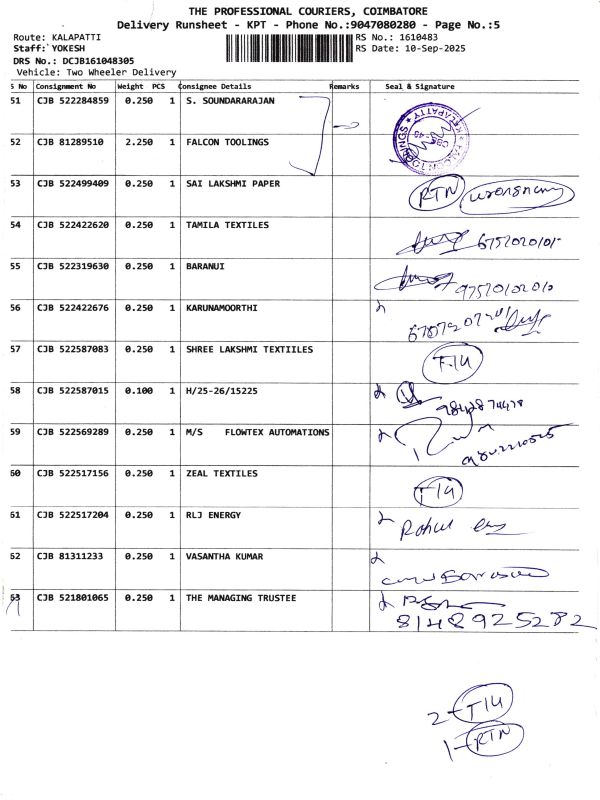 THE PROFESSIONAL COURIERS, COIMBATORE
Delivery Runsheet - KPT - Phone No.:9047080280 - Page No.:5
Route: KALAPATTI RS No.: 1610483
Staff: YOKESH RS Date: 10-Sep-2025
DRS No.: DCJB161048305
Vehicle: Two Wheeler Delivery
S No Consignment No Weight PCS Consignee Details Remarks Seal & Signature
51 CJB 522284859 0.250 1 S. SOUNDARARAJAN
52 CJB 81289510 2.250 1 FALCON TOOLINGS
53 CJB 522499409 0.250 1 SAI LAKSHMI PAPER RTN
54 CJB 522422620 0.250 1 TAMILA TEXTILES
55 CJB 522319630 0.250 1 BARANUI
56 CJB 522422676 0.250 1 KARUNAMOORTHI
57 CJB 522587083 0.250 1 SHREE LAKSHMI TEXTIILES T/U
58 CJB 522587015 0.100 1 H/25-26/15225
59 CJB 522569289 0.250 1 M/S FLOWTEX AUTOMATIONS
60 CJB 522517156 0.250 1 ZEAL TEXTILES T/U
61 CJB 522517204 0.250 1 RLJ ENERGY Rahul
62 CJB 81311233 0.250 1 VASANTHA KUMAR
63 CJB 521801065 0.250 1 THE MANAGING TRUSTEE
8148925282
2 - T/U
1 - RTN